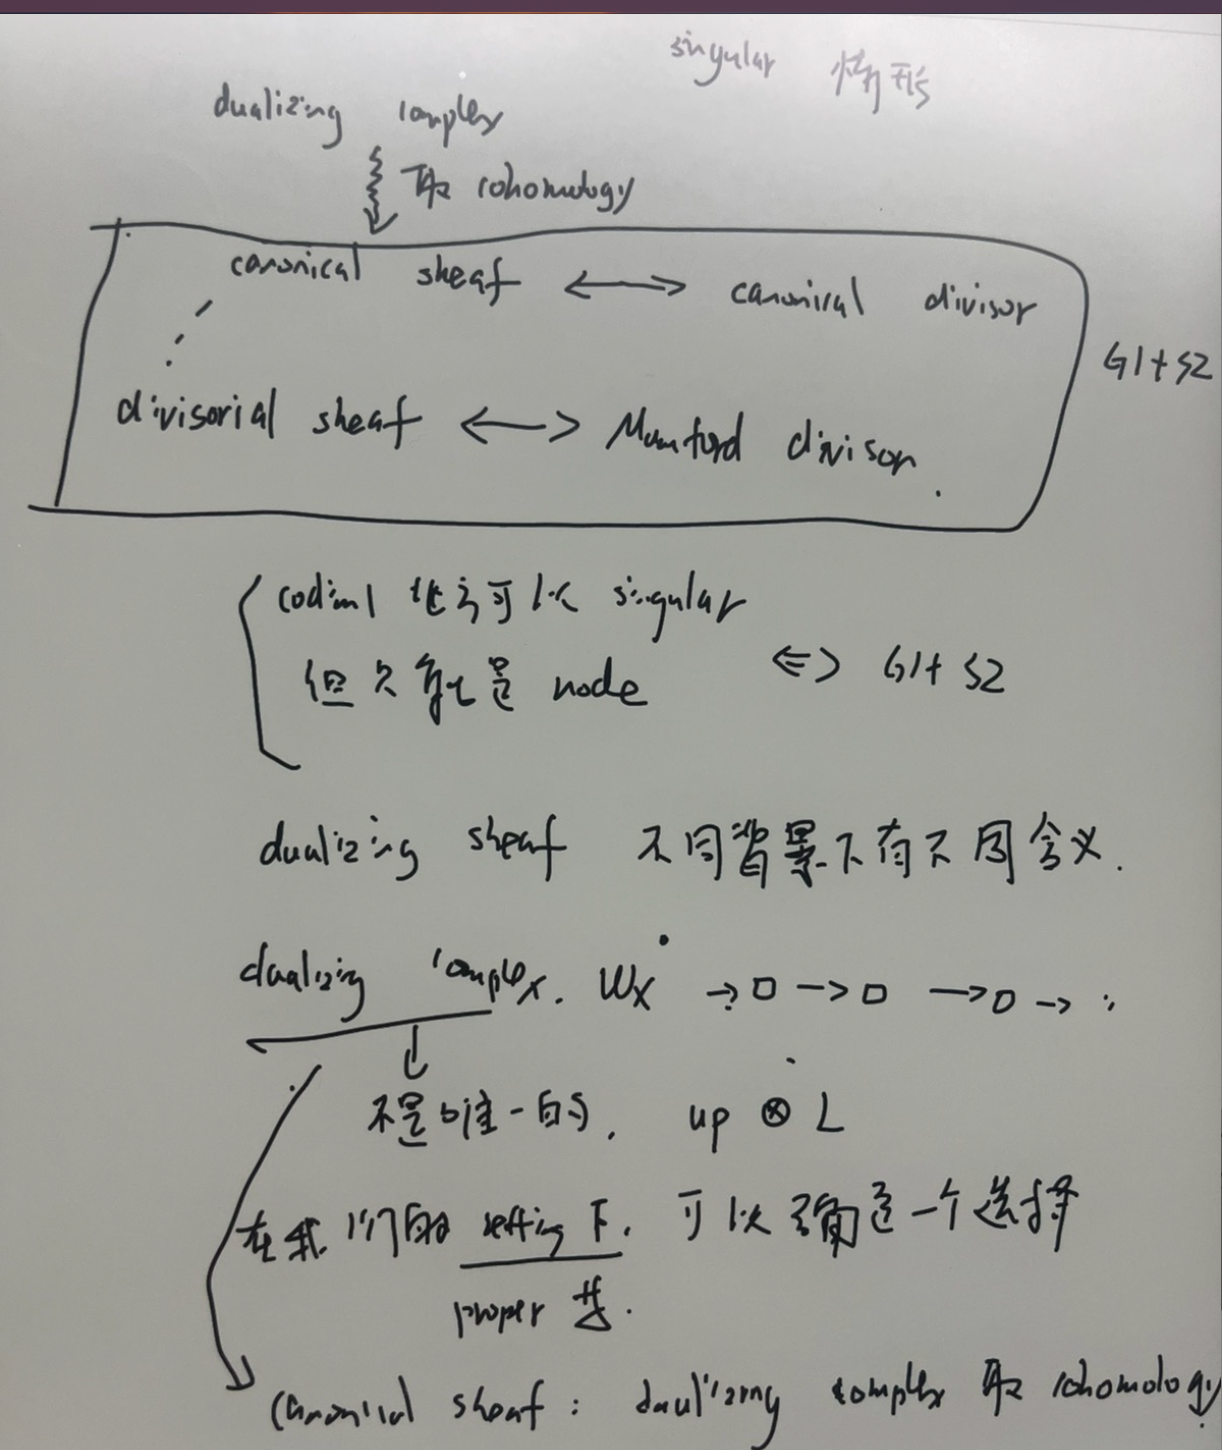 singular 情形
dualizing complex
取 cohomology
canonical sheaf ⟷ canonical divisor
G1+S2
divisorial sheaf ⟷ Mumford divisor.
codim1 处可以 singular
但只能是 node ⇔ G1+S2
dualizing sheaf 不同背景下有不同含义.
dualizing complex. ωx• → □ → □ → □ →
不是唯一的. up ⊗ L
在我们的 setting 下. 可以确定一个选择
proper 时.
canonical sheaf : daulizing complex 取 cohomology